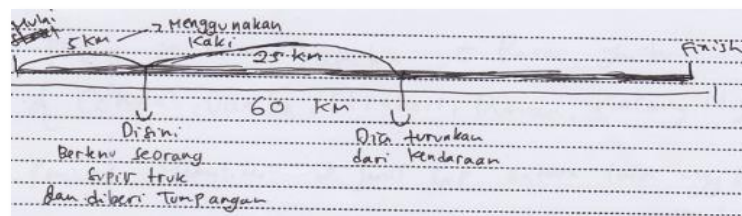 Mulai
Start
5 km → Menggunakan
Kaki
25 km
Finish
60 KM
Disini
Bertemu seorang
Supir truk
dan diberi Tumpangan
Dia turunkan
dari kendaraan